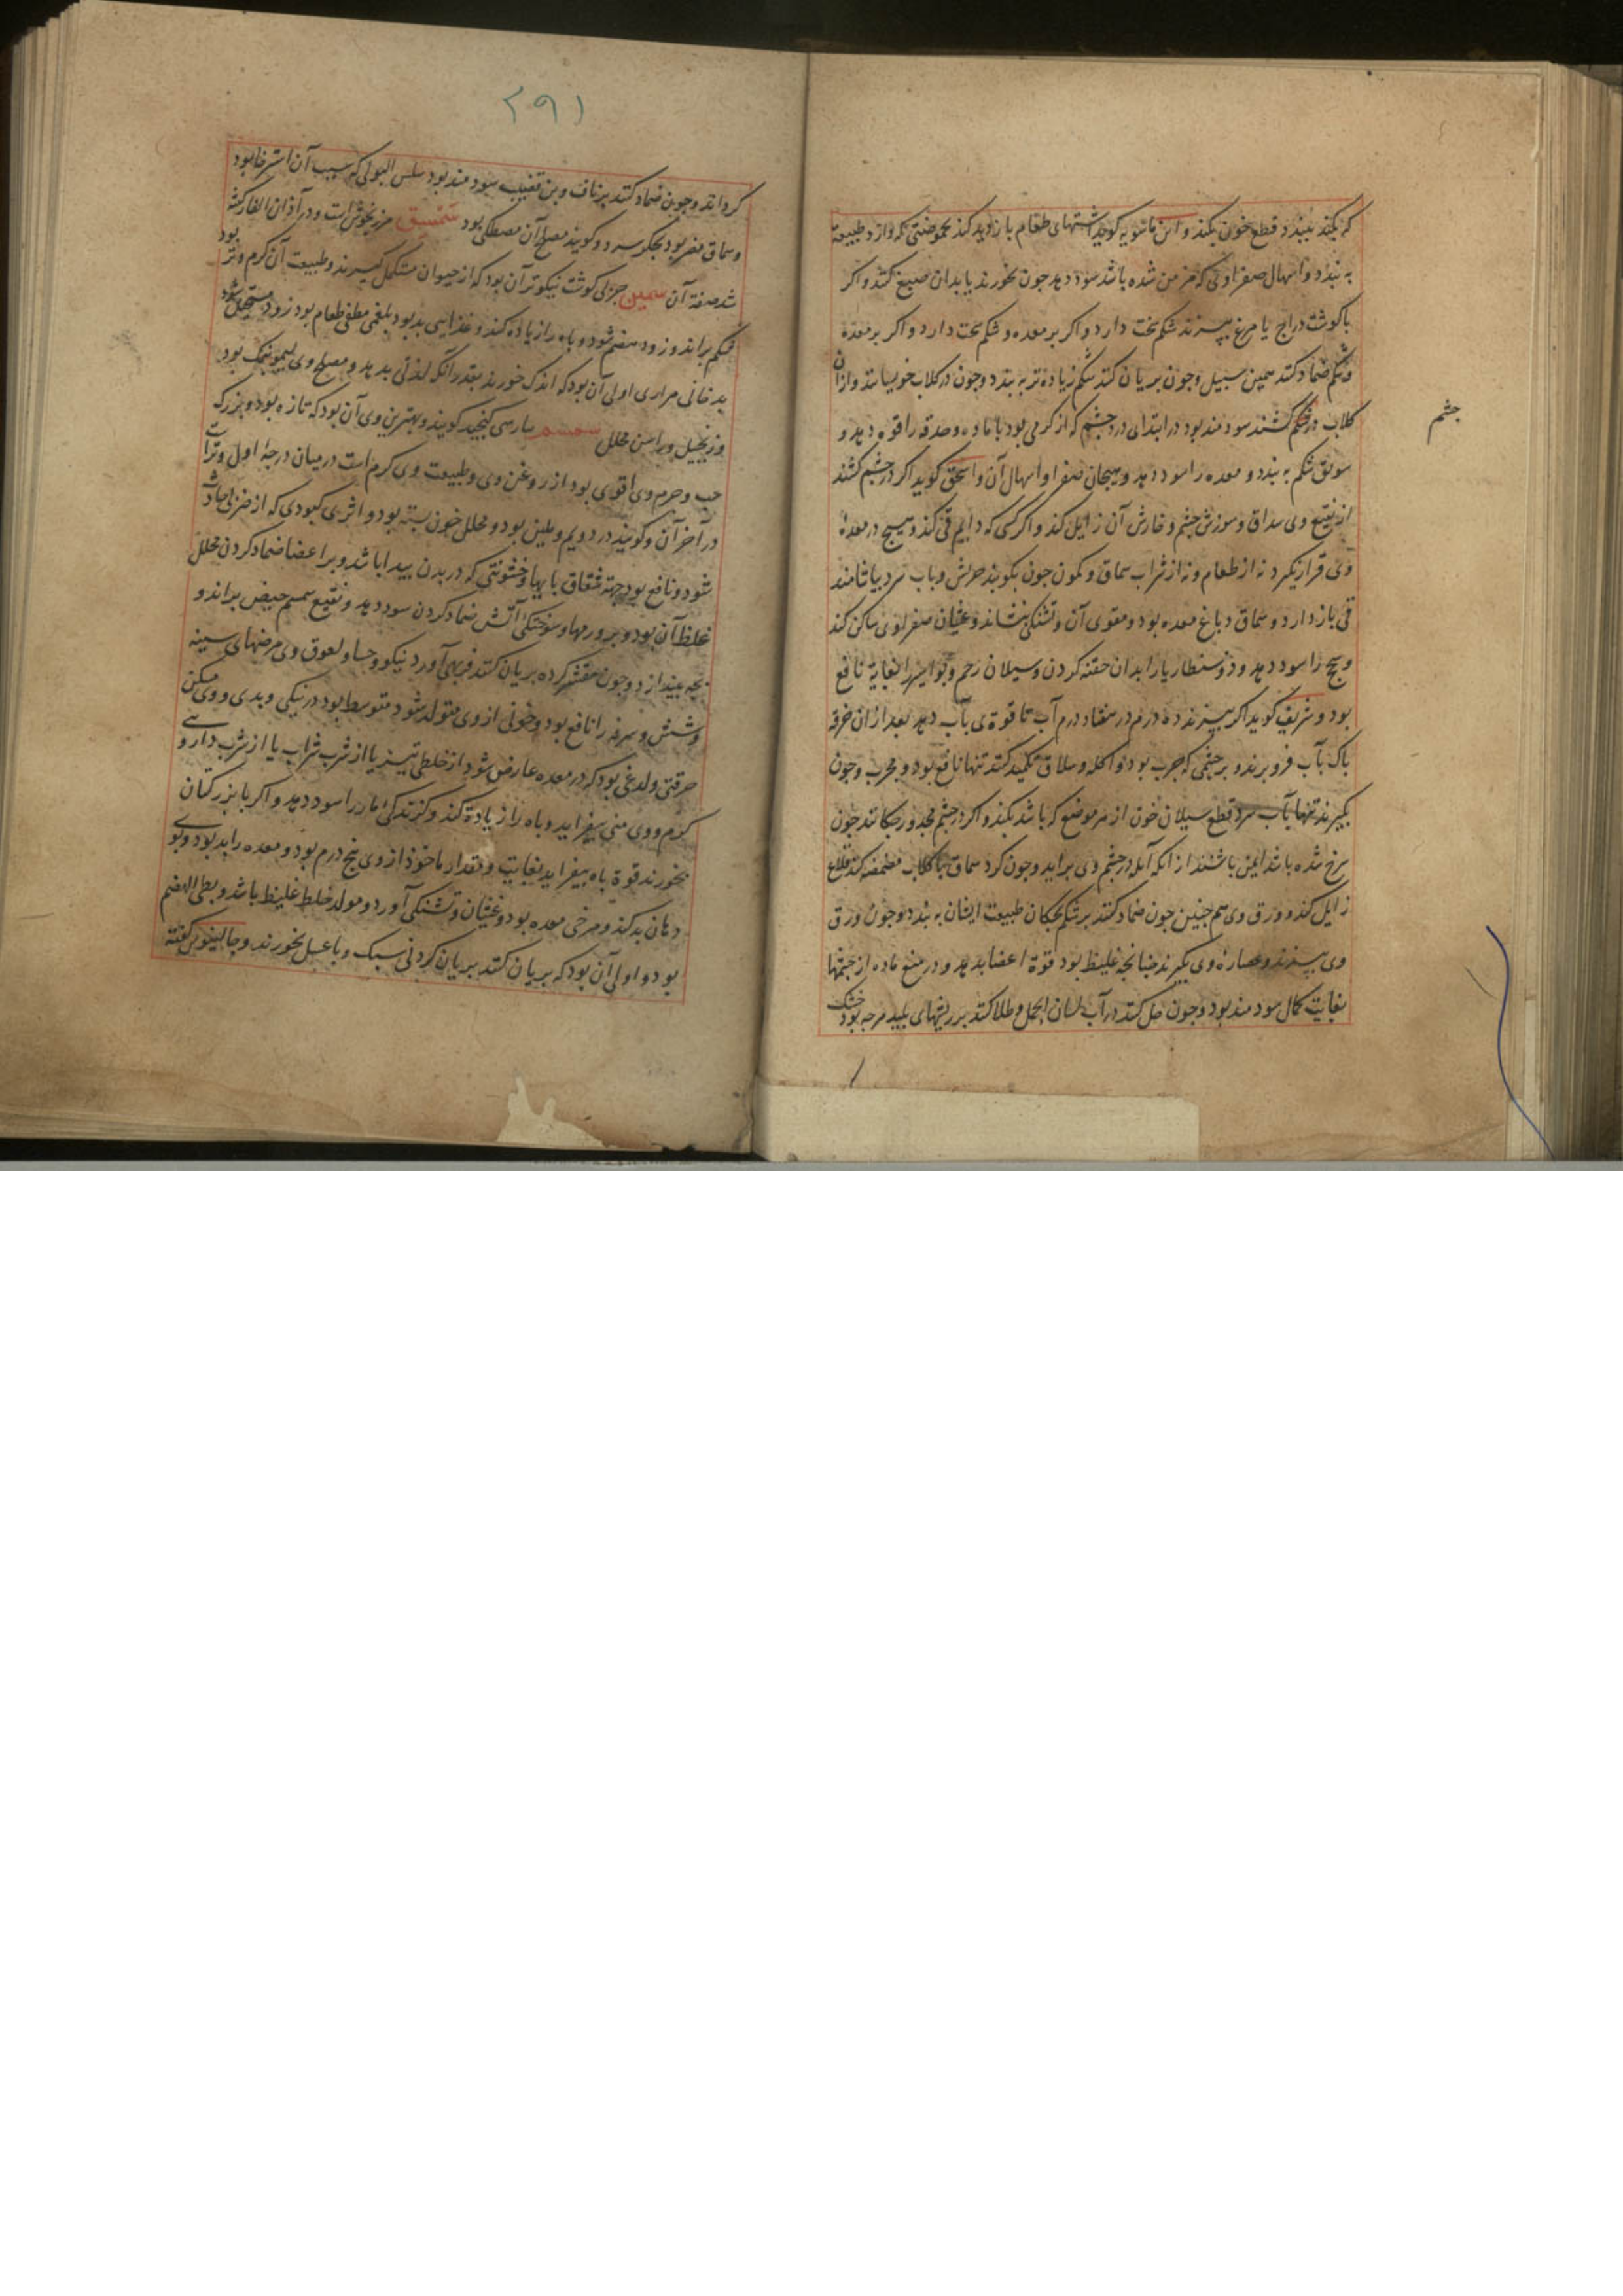 که نکنید ببندد قطع خون بکند و ابن ماسویه کوید اشتهای طعام بازدید کند بحموضتی که دارد و طبیعت
به بندد و اسهال صفراوی که مزمن شده باشد سود دهد جون بخورند یا بدان صبیغ کنند و اکر
با کوشت دراج یا مرغ بپزند شکم سخت دارد و اکر بر معده و شکم سخت دارد و اکر بر معده
و شکم ضماد کنند همین سبیل و جون بریان کنند شکم زیاده تر به بندد و جون در کلاب خویسانند و ازان
کلاب در چشم کشند سودمند بود در ابتدای درد چشم که از کرمی بود با ماده و حدقه را قوه دهد و
جشم
سویق شکم به بندد و معده را سود دهد و هیجان صفرا و اسهال آن و اسحق کوید اکر در چشم کشند
از نقیع وی سداق و سوزش چشم و خارش آن زایل کند و اکر کسی که دایم قی کند و هیچ در معده
وی قرار نکیرد نه از طعام و نه از شراب سماق و کمون جون بکوبند جرش و باب سرد بیاشامند
قی بازدارد و سماق دباغ معده بود و مقوی آن و تشنکی بنشاند و غثیان صفراوی ساکن کند
و سحج را سود دهد و ذوسنطاریا را بدان حقنه کردن و سیلان رحم و بواسیر را بغایه نافع
بود و شریف کوید اکر بپزند ده درم در هفتاد درم آب تا قوة وی بآب دهد بعد از ان خرقه
پاک بآب فرو برند و بر چشمی که جرب بود و اکله و سلاق تکمید کنند تنها نافع بود و مجرب و جون
بکیرند تنها بآب سرد قطع سیلان خون از هر موضع که باشد بکند و اکر در چشم مجدور جکانند جون
سرخ شده باشد ایمن باشند از انکه آبله در چشم وی براید و جون کرد سماق با کلاب مضمضه کند قلاع
زایل کند و ورق وی هم جنین جون ضماد کنند بر شکم بجکان طبیعت ایشان به بندد و جون ورق
وی بپزند و عصارهٔ وی بکیرند جنانجه غلیظ بود قوة اعضا بدهد و در منع ماده از جشمها
بغایت کمال سودمند بود و جون حل کنند در آب لسان الحمل و طلا کنند بر ریشهای پلید هرجه بود خشک
۲۹۱
کرداند و جون ضماد کنند بر ناف و بن قضیب سودمند بود سلس البولی که سبب آن استرخا بود
و سماق مضر بود بجکر سرد و کویند مصلح آن مصطکی بود سمسق مرزنجوش است و در آذان الفار کفته
شد صفة آن سمین جزلی کوشت نیکوتر آن بود که از حیوان متکمل کیرند و طبیعت آن کرم و تر بود
شکم براند و زود هضم شود و باه را زیاده کند و غذایی بد بود بلغمی مطفی طعام بود زود مستحیل شود
بدخانی مراری اولی آن بود که اندک خورند بقدر آنکه لذتی بدهد و مصلح وی لیمو بنمک بود
و زنجبیل و راسن مخلل سمسم بپارسی کنجد کویند و بهترین وی آن بود که تازه بود و بزرک
حب و جرم وی اقوی بود از روغن وی و طبیعت وی کرم است در میان درجهٔ اول و تر است
در آخر آن و کویند در دویم و ملین بود و محلل خون بسته بود و اثری کبودی که از ضربی حادث
شود و نافع بود جهة شقاق پایها و خشونتی که در بدن پیدا باشد و بر اعضا ضماد کردن محلل
غلظ آن بود و بر ورمها و سوختکی آتش ضماد کردن سود دهد و نقیع سمسم حیض براند و
بجه بیندازد و جون مقشر کرده بریان کنند فربهی آورد نیکو و حسا و لعوق وی مرضهای سینه
و شش و سرفه را نافع بود و خونی از وی متولد شود متوسط بود در نیکی و بدی و وی مسکن
حرقتی و لدغی بود که در معده عارض شود از خلطی تیز یا از شرب شراب یا از شرب داروی
کرم و وی منی بیفزاید و باه را زیادة کند و کزندکی مار را سود دهد و اکر با بزر کتان
بخورند قوة باه بیفزاید بغایت و مقدار ماخوذ از وی پنج درم بود و معده را بد بود و بوی
دهان بد کند و مرخی معده بود و غثیان و تشنکی آورد و مولد خلط غلیظ باشد و بطی الهضم
بود و اولی آن بود که بریان کنند بریان کردنی سبک و با عسل بخورند و جالینوس کفته